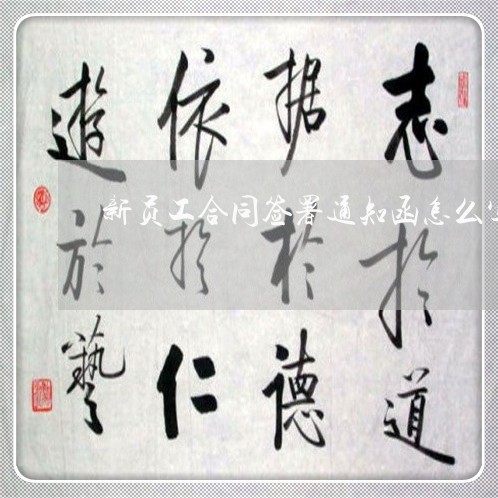 志於道
据於德
依於仁
遊於藝
新员工合同签署通知函怎么